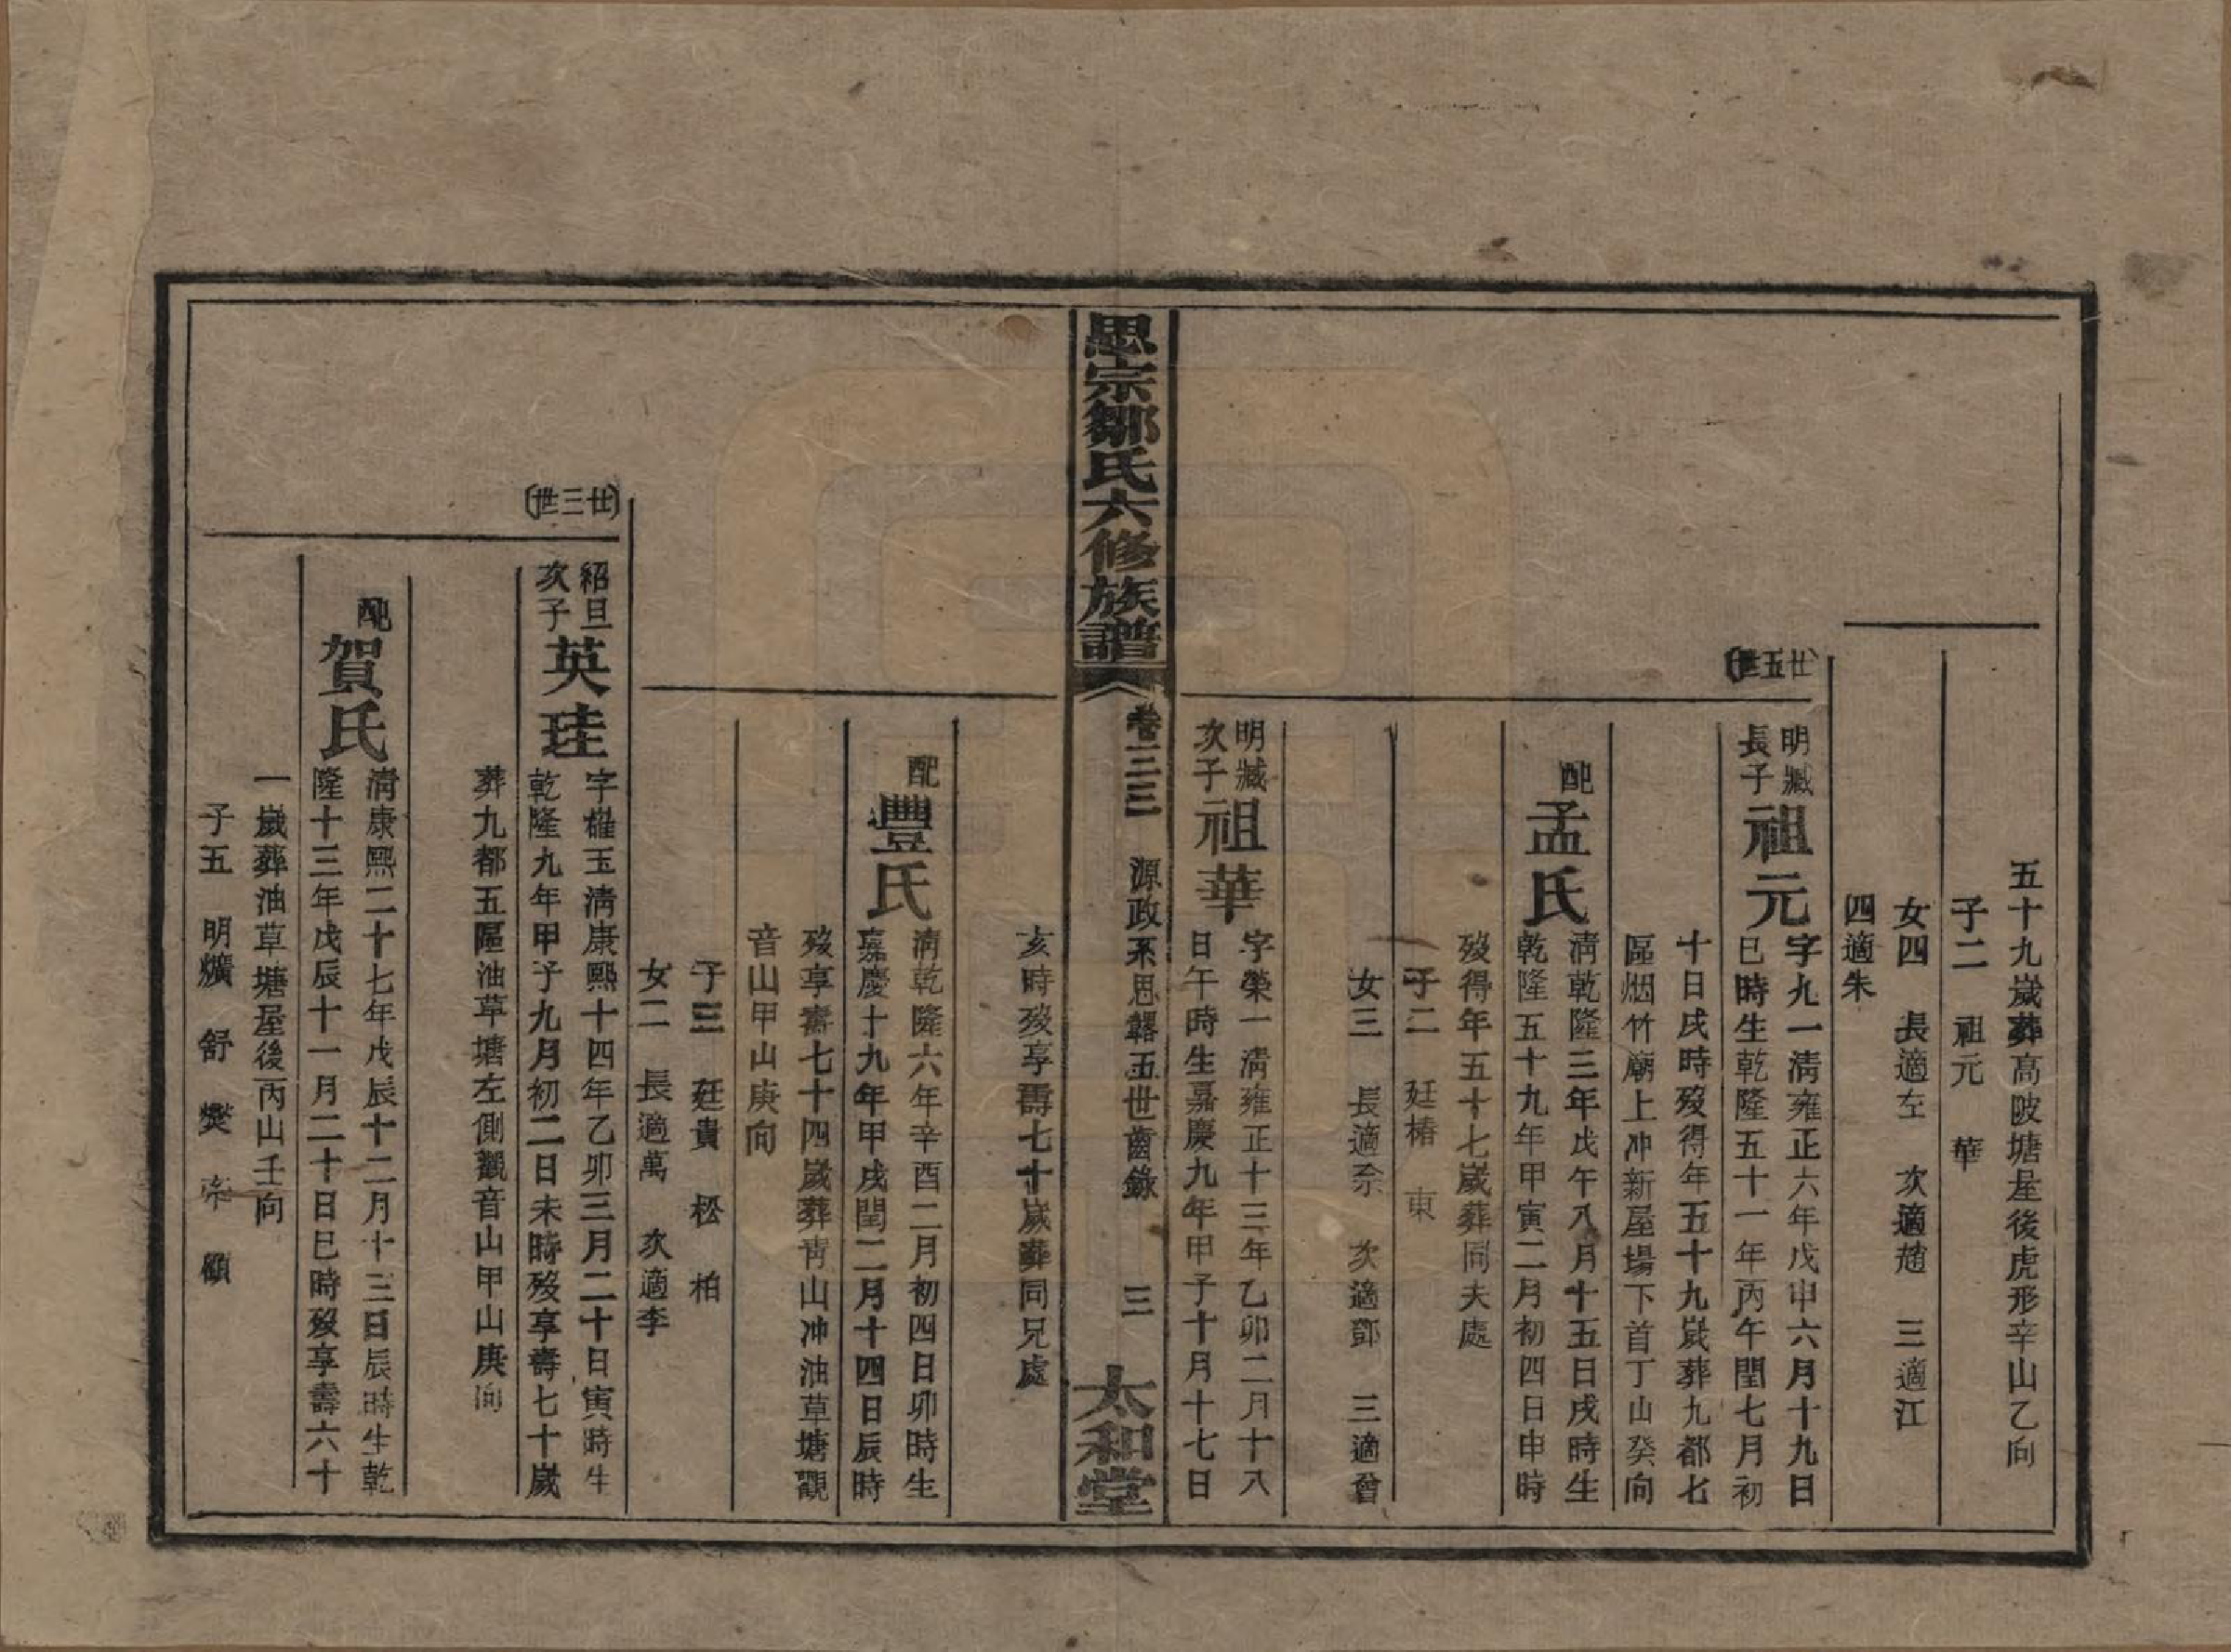 五十九嵗葬高陂塘屋後虎形辛山乙向
子二　祖元　華
女四　長適左　次適趙　三適江
四適朱
廿五世
明臧長子　祖元　字九一清雍正六年戊申六月十九日
巳時生乾隆五十一年丙午閏七月初
十日戌時歿得年五十九嵗葬九都七
區烟竹廟上冲新屋場下首丁山癸向
配　孟氏　清乾隆三年戊午八月十五日戌時生
乾隆五十九年甲寅二月初四日申時
歿得年五十七嵗葬同夫處
子二　廷椿　東
女三　長適佘　次適鄧　三適曾
明臧次子　祖華　字榮一清雍正十三年乙卯二月十八
日午時生嘉慶九年甲子十月十七日
思宗鄒氏六修族譜　卷三三　源政系思韜五世齒錄　三　太和堂
亥時歿享壽七十嵗葬同兄處
配　豐氏　清乾隆六年辛酉二月初四日卯時生
嘉慶十九年甲戌閏二月十四日辰時
歿享壽七十四嵗葬青山冲油草塘觀
音山甲山庚向
子三　廷貴　松　柏
女二　長適萬　次適李
廿三世
紹旦次子　英珪　字權玉清康熙十四年乙卯三月二十日寅時生
乾隆九年甲子九月初二日未時歿享壽七十嵗
葬九都五區油草塘左側觀音山甲山庚向
配　賀氏　清康熙二十七年戊辰十二月十三日辰時生乾
隆十三年戊辰十一月二十日巳時歿享壽六十
一嵗葬油草塘屋後丙山壬向
子五　明爌　舒　燓　顧